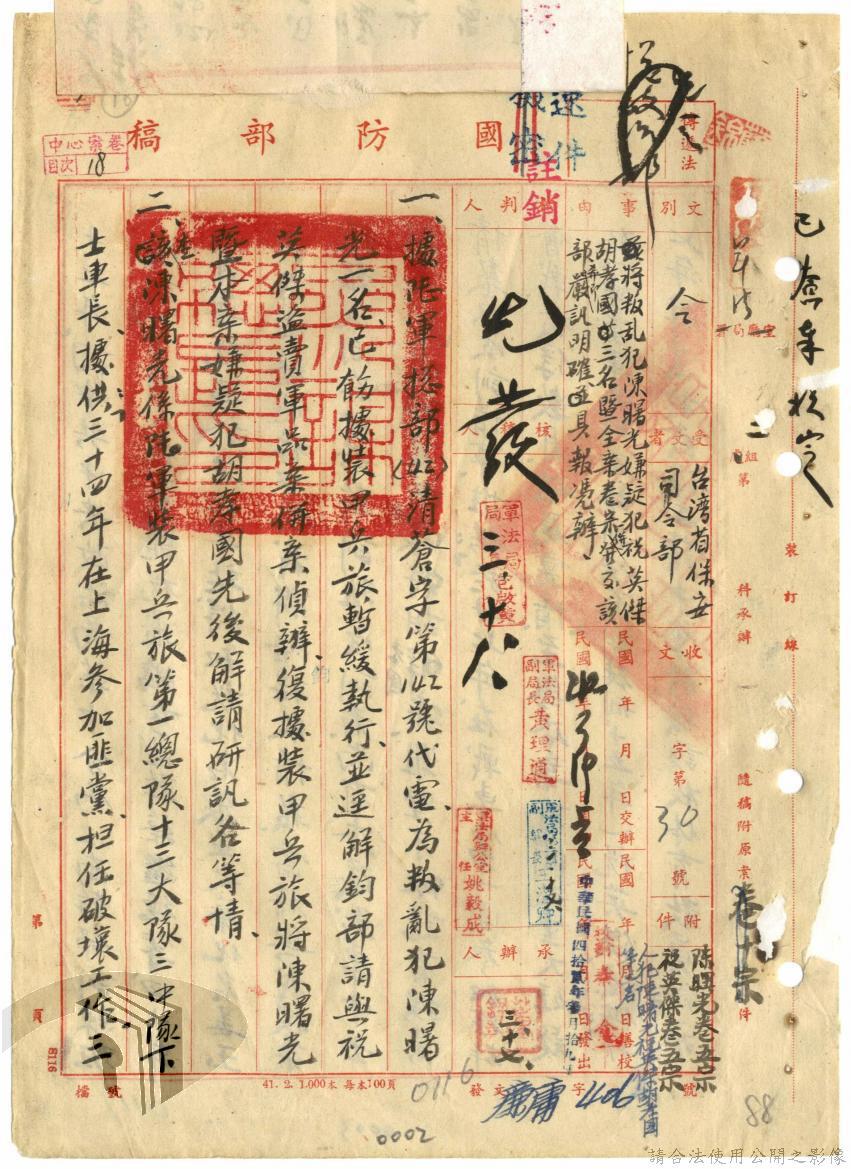 國防部稿
速件
機密
註銷
中心案卷
目次 18
文別
令
事由
為將叛乱犯陳曙光嫌疑犯祝英傑
胡孝國等三名暨全案卷宗發交該
部嚴訊明確並具報憑辦
受文者
台湾省保安
司令部
收文
字第30號
附件
陳曙光卷五宗
祝英傑卷五宗
判人
核人
承辦人
先發
三、十八
軍法局已啟發
軍法局副局長 黃理道
軍法局辦公室主任 姚毅成
三、十七、
民國 年 月 日交辦
民國 年 月 日繕校
中華民國四拾貳年叁月拾九日發出
發文
廉庸
字
406
號
一、據陸軍總部(42)清蒼字第142號代電為叛亂犯陳曙
光一名已飭據裝甲兵旅暫緩執行並逕解鈞部請與祝
英傑盜賣軍品案併案偵辦、復據裝甲兵旅將陳曙光
暨本案嫌疑犯胡孝國先後解請研訊各等情、
二、查陳曙光係陸軍裝甲兵旅第一總隊十三大隊三中隊下
士車長、據供：三十四年在上海參加匪黨、担任破壞工作、三
裝訂線
第
科承辦
隨稿附原案卷十宗件
第
頁
8116
檔號
41.2.1.000本 每本100頁
0116
0002
88
請合法使用公開之影像